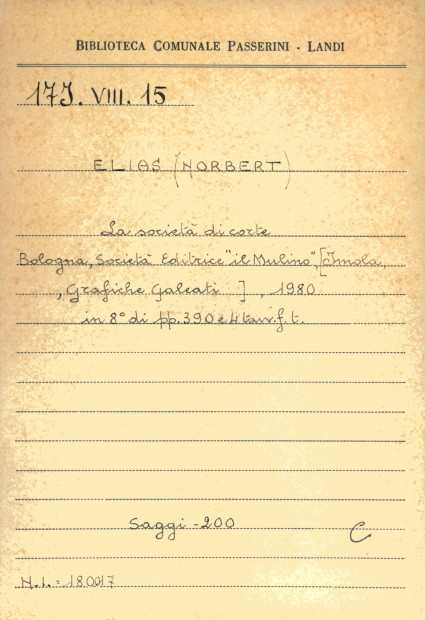 BIBLIOTECA COMUNALE PASSERINI - LANDI
17J. VIII. 15
ELIAS (NORBERT)
La società di corte
Bologna, Società Editrice "il Mulino", [Imola,
, Grafiche Galeati ] , 1980
in 8° di pp. 390 e 4 tav. f. t.
Saggi - 200
C
N. i. = 180017